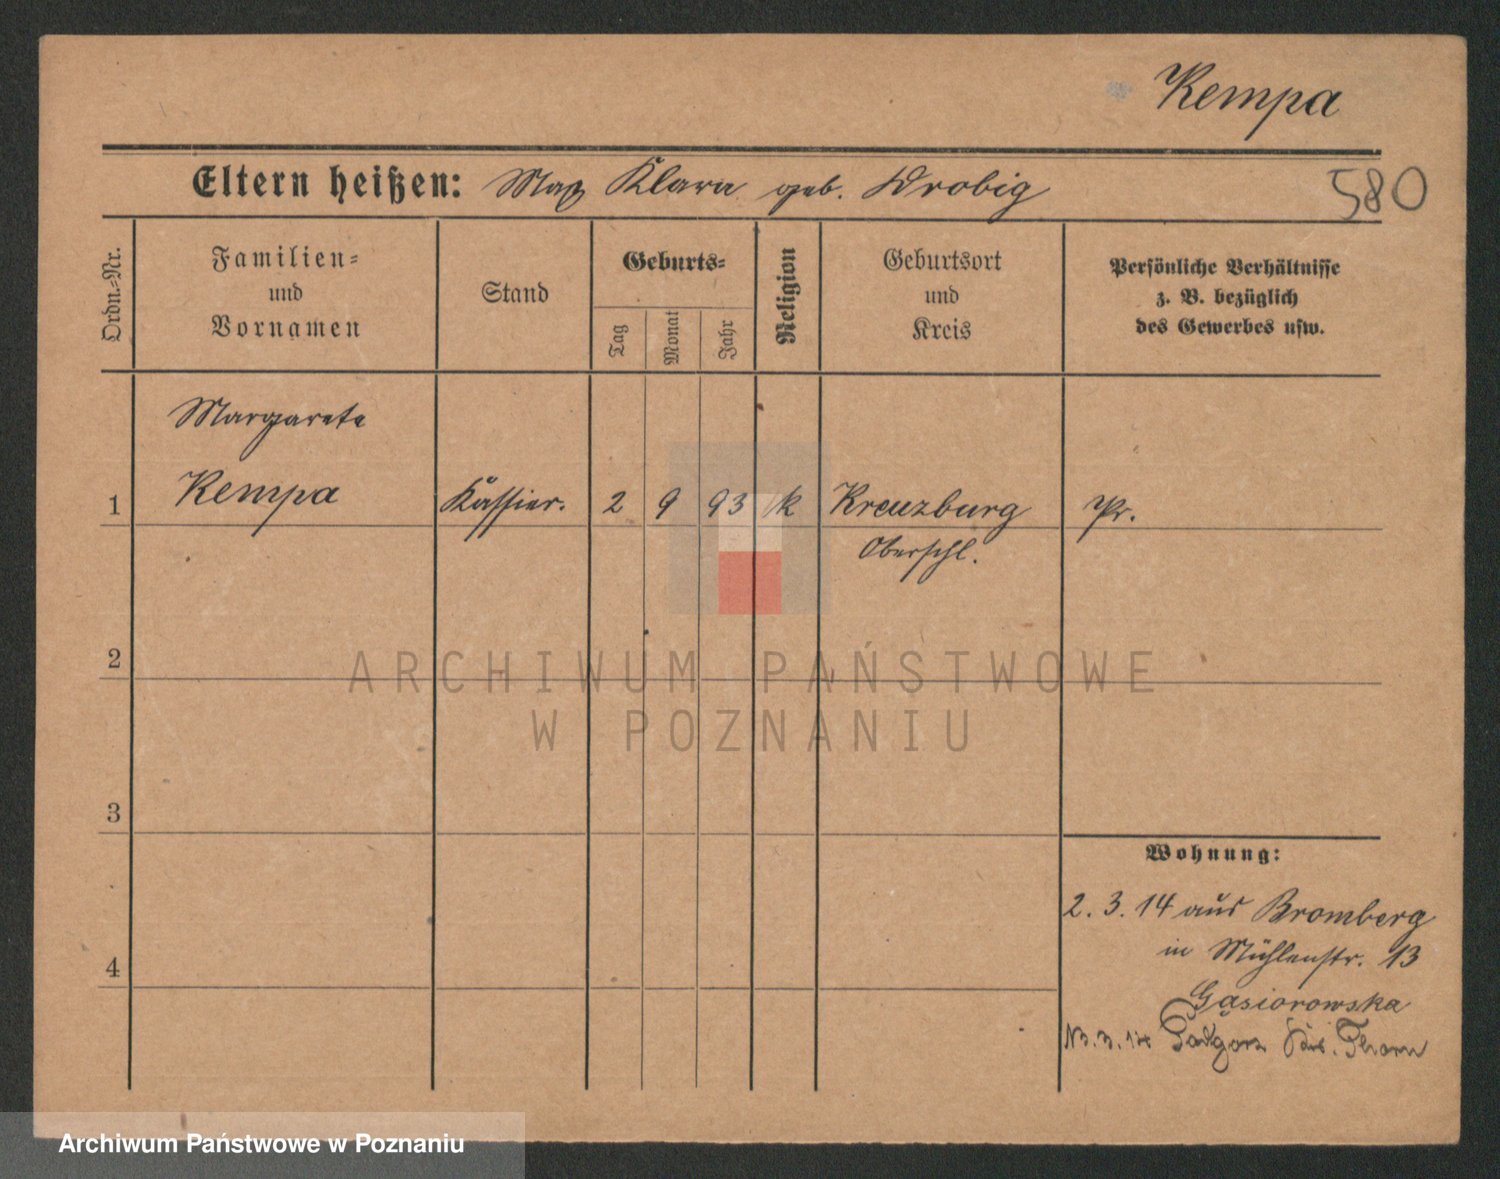 Kempa
Eltern heißen: Max Klara geb. Drobig
580
Ordn.-Nr.
Familien-
und
Vornamen
Stand
Geburts-
Tag
Monat
Jahr
Religion
Geburtsort
und
Kreis
Persönliche Verhältnisse
z. B. bezüglich
des Gewerbes usw.
Margarete
1 Kempa Kassier. 2 9 93 k Kreuzburg Pr.
Oberschl.
2
ARCHIWUM PAŃSTWOWE
W POZNANIU
3
Wohnung:
2. 3. 14 aus Bromberg
in Mühlenstr. 13
4
Gąsiorowska
Podgorz Thorn
Archiwum Państwowe w Poznaniu